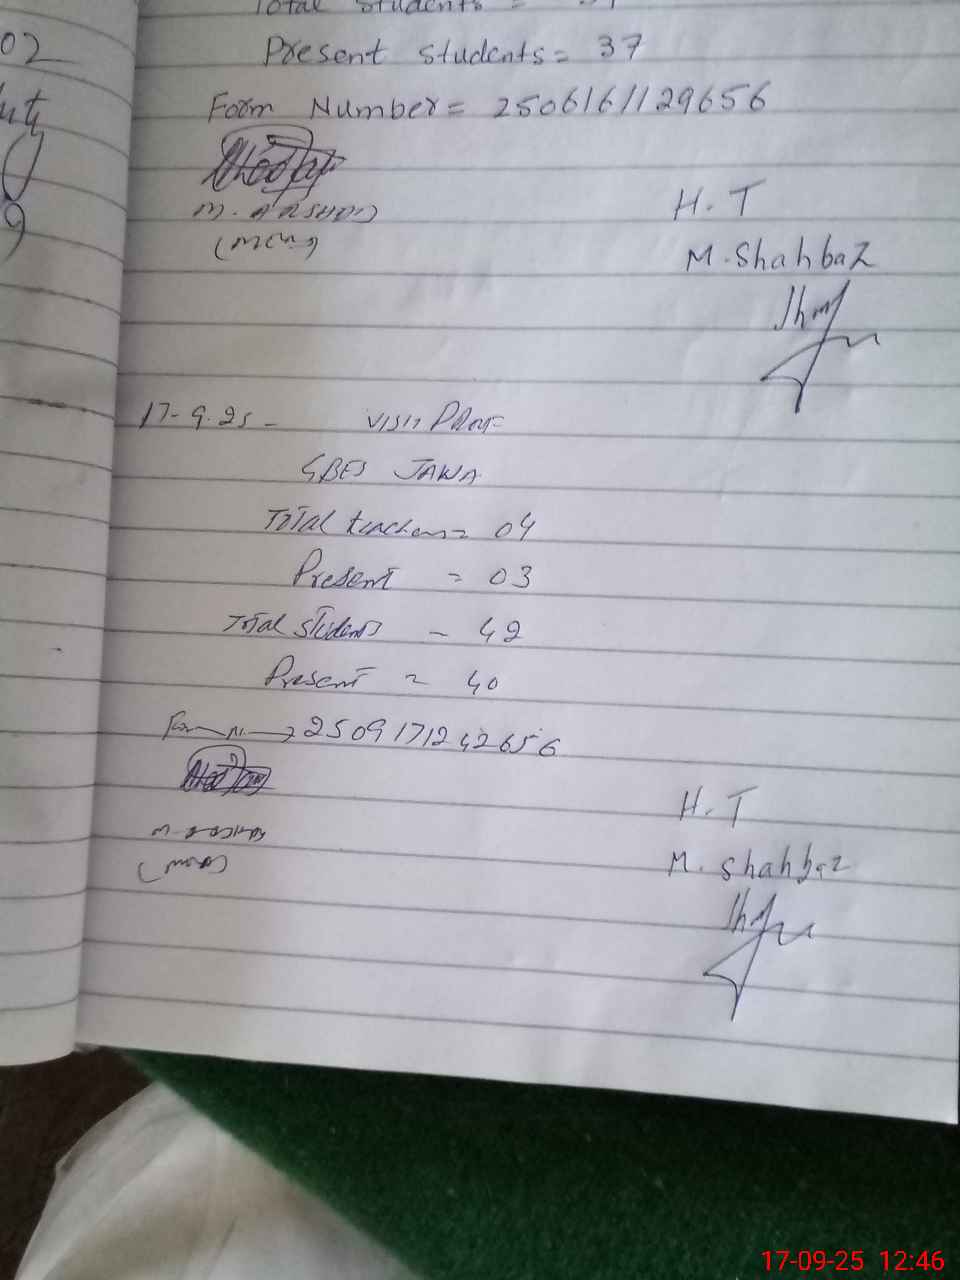 02
Total Students =
Present Students = 37
Form Number = 2506161129656
M. ARSHAD
H. T
M. Shahbaz
17-9-25 - VISIT PROF
GBES JAWA
Total teachers = 04
Present = 03
Total Students - 42
Present = 40
Form N. → 2509171242656
H. T
M. Shahbaz
17-09-25 12:46